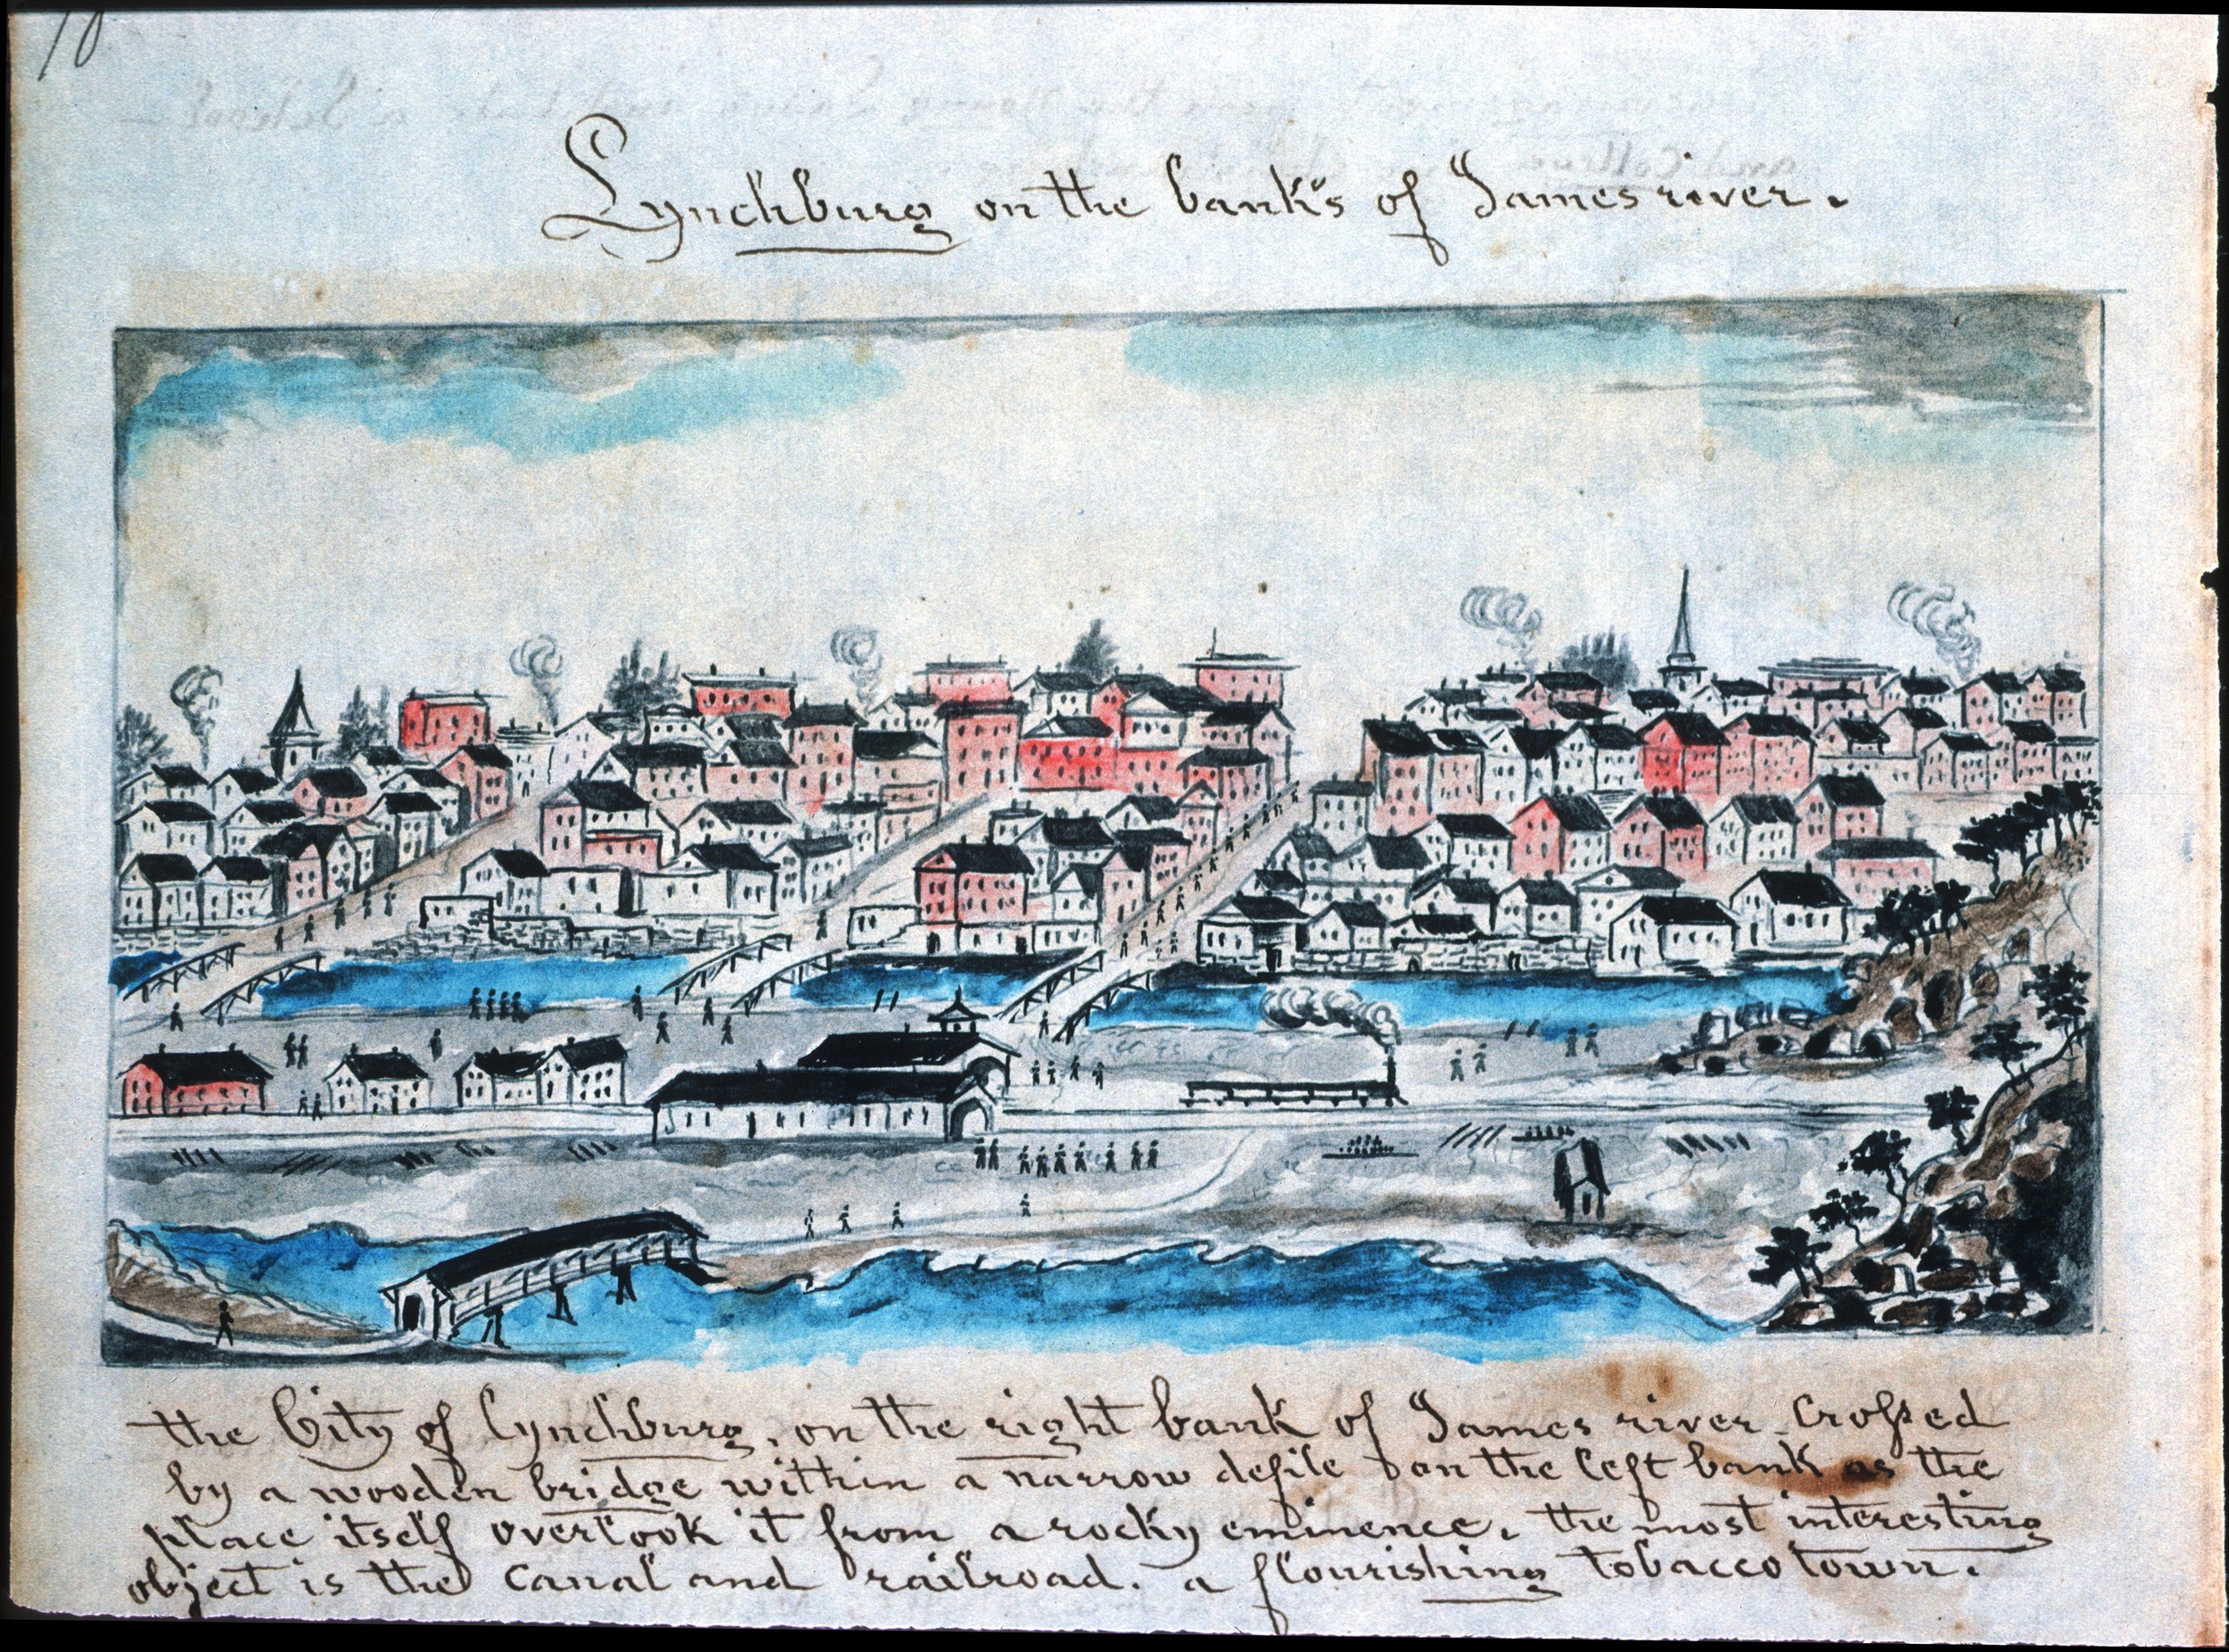 10
Lynchburg on the bank's of James river.
the City of Lynchburg, on the right bank of James river crossed
by a wooden bridge within a narrow defile on the left bank as the
place itself overlook it from a rocky eminence. the most interesting
object is the canal and railroad. a flourishing tobacco town.